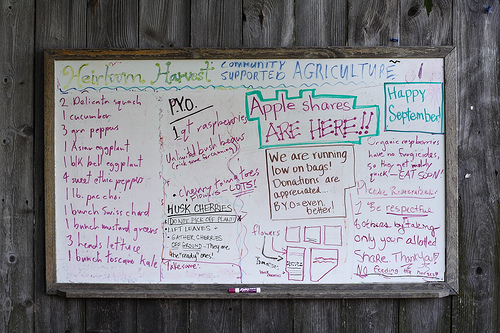 Heirloom Harvest COMMUNITY SUPPORTED AGRICULTURE
2 Delicata squash
1 cucumber
3 grn peppers
1 Asian eggplant
1 blk bell eggplant
4 sweet ethnic peppers
1 lb. pac choi
1 bunch Swiss chard
1 bunch mustard greens
3 heads lettuce
1 bunch toscano kale
P.Y.O.
1 qt raspberries
Unlimited bush beans
• Cherry tomatoes
LOTS!
HUSK CHERRIES
DO NOT PICK OFF PLANT!
• LIFT LEAVES +
GATHER CHERRIES
OFF GROUND. They are
the "ready" ones!
Apple shares
ARE HERE!!
We are running
low on bags!
Donations are
appreciated...
BYO = even
better!
Flowers
Happy
September!
Organic raspberries
have no fungicides,
so they get moldy
quick — EAT SOON!
Please Remember
2 Be respectful
of others by taking
only your allotted
Share. Thank you!
NO feeding the horses!